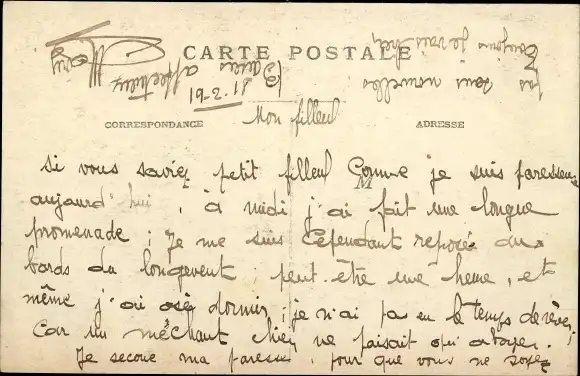 CARTE POSTALE
CORRESPONDANCE
ADRESSE
Mon filleul
M
Si vous saviez petit filleul Comme je suis paresseux
aujourd'hui, à midi j'ai fait une longue
promenade ; Je me suis Cependant reposée aux
bords du longevent ; peut-être une heure, et
même j'ai osé dormir ; je n'ai pas eu le temps de rêver ;
Car un méchant chien ne faisait qu'aboyer.
Je secoue ma paresse, pour que vous ne soyez
pas sans nouvelles
Toujours je vais bien
Baisers affectueux
Mary